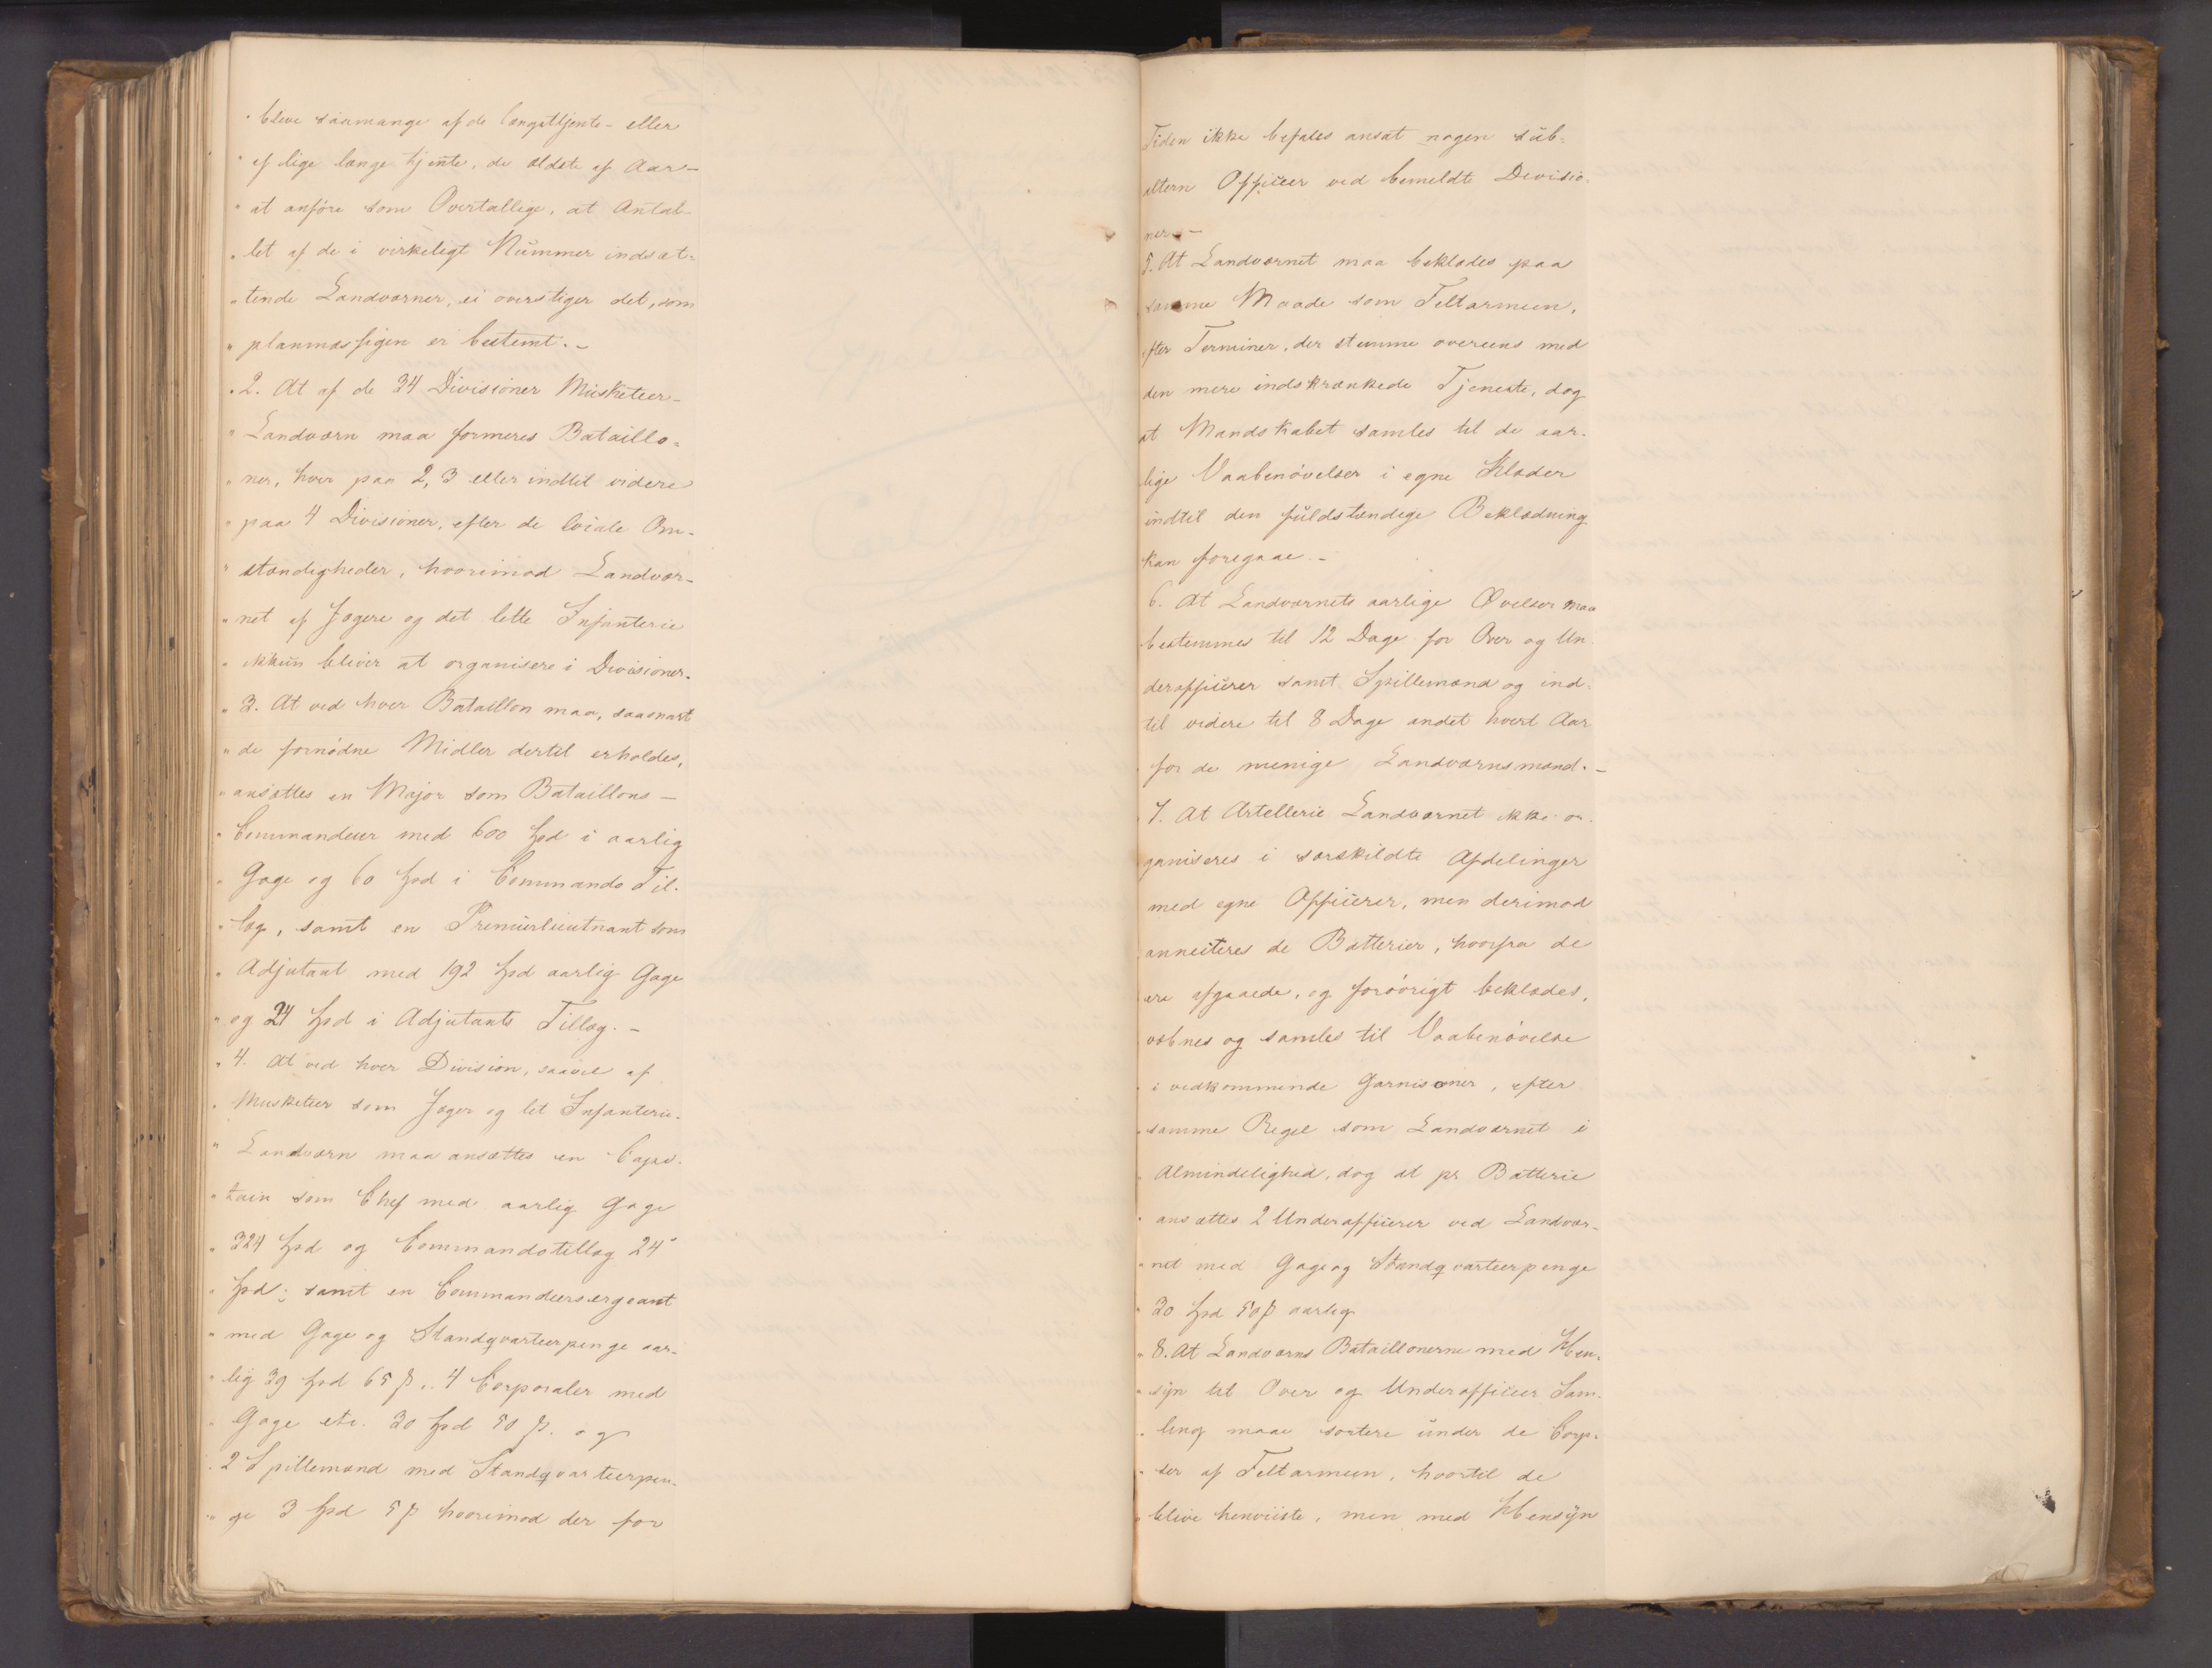 " bleve saamange af de længsttjente - eller
" af lige længe tjente, de ældste af Aar -
" at anføre som Overtallige, at Antal-
" let af de i virkeligt Nummer indsæt-
" tende Landværner, ei overstiger det, som
" planmæssigen er bestemt. -
" 2. At af de 34 Divisioner Musketeer-
" Landværn maa formeres Bataillo-
" ner, hver paa 2, 3 eller indtil videre
" paa 4 Divisioner, efter de locale Om-
" stændigheder, hvorimod Landvær-
" net af Jægere og det lette Infanterie
" ikkun bliver at organisere i Divisioner.
" 3. At ved hver Bataillon maa, saasnart
" de fornødne Midler dertil erholdes,
" ansættes en Major som Bataillons -
" Commandeur med 600 Spd i aarlig
" Gage og 60 Spd i Commando Til-
" læg, samt en Premierlieutnant som
" Adjutant med 192 Spd aarlig Gage
" og 24 Spd i Adjutants Tillæg. -
" 4. At ved hver Division, saavel af
" Musketeer som Jæger og let Infanterie-
" Landværn maa ansættes en Capi-
" tain som Chef med aarlig Gage
" 324 Spd og Commandotillæg 24
" Spd; samt en Commandeersergeant
" med Gage og Standqvarteerpenge aar-
" lig 39 Spd 65 β, 4 Corporaler med
" Gage etc. 30 Spd 50 β. og
" 2 Spillemænd med Standqvarteerpen-
" ge 3 Spd 5 β hvorimod der for
Tiden ikke befales ansat nogen sub-
altern Officeer ved bemeldte Divisio-
ner. -
5. At Landværnet maa beklædes paa
samme Maade som Feltarmeen,
efter Terminer, der stemme overeens med
den mere indskrænkede Tjeneste, dog
at Mandskabet samles til de aar-
lige Vaabenøvelser i egne Klæder
indtil den fuldstændige Beklædning
kan foregaae. -
6. At Landværnets aarlige Øvelser maa
bestemmes til 12 Dage for Over og Un-
derofficerer samt Spillemænd og ind-
til videre til 8 Dage andet hvert Aar
for de menige Landværnsmænd. -
7. At Artellerie Landværnet ikke or-
ganiseres i særskildte Afdelinger
med egne Officerer, men derimod
annecteres de Batterier, hvorfra de
ere afgaaede, og forøvrigt beklædes,
væbnes og samles til Vaabenøvelse
" i vedkommende Garnisoner, efter
" samme Regel som Landværnet i
" Almindelighed, dog at pr Batterie
" ansættes 2 Underofficerer ved Landvær-
" net med Gage og Standqvarteerpenge
" 30 Spd 50 β aarlig
" 8. At Landværns Bataillonerne med Hen-
" syn til Over og Underofficeer Sam-
" ling maae sortere under de Corp-
" ser af Feltarmeen, hvortil de
" blive henviiste, men med Hensyn